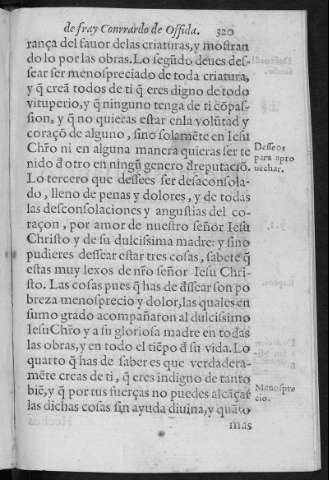 de fray Conrrardo de Offida. 320
rança del fauor delas criaturas, y mostran
do lo por las obras. Lo segũdo deues des-
sear ser menospreciado de toda criatura,
y q̃ creã todos de ti q̃ eres digno de todo
vituperio, y q̃ ninguno tenga de ti cõpas-
sion, y q̃ no quieras estar enla volũtad y
coraçõ de alguno, sino solamẽte en Iesu
Chr̃o ni en alguna manera quieras ser te
nido d̃ otro en ningũ genero d̃reputaciõ.
Desseos
para apro
uechar.
Lo tercero que dessees ser desaconsola-
do, lleno de penas y dolores, y de todas
las desconsolaciones y angustias del co-
raçon, por amor de nuestro señor Iesu
Christo y de su dulcissima madre: y sino
pudieres dessear estar tres cosas, sabete q̃
estas muy lexos de nr̃o señor Iesu Chri-
sto. Las cosas pues q̃ has de d̃ssear son po
breza menosprecio y dolor, las quales en
sumo grado acompañaron al dulcissimo
Iesu Chr̃o y a su gloriosa madre en todas
las obras, y en todo el tiẽpo d̃ su vida. Lo
quarto q̃ has de saber es que verdadera-
mẽte creas de ti, q̃ eres indigno de tanto
biẽ, y q̃ por tus fuerças no puedes alcãçar
Menospre
cio.
las dichas cosas sin ayuda diuina, y quãto
mas